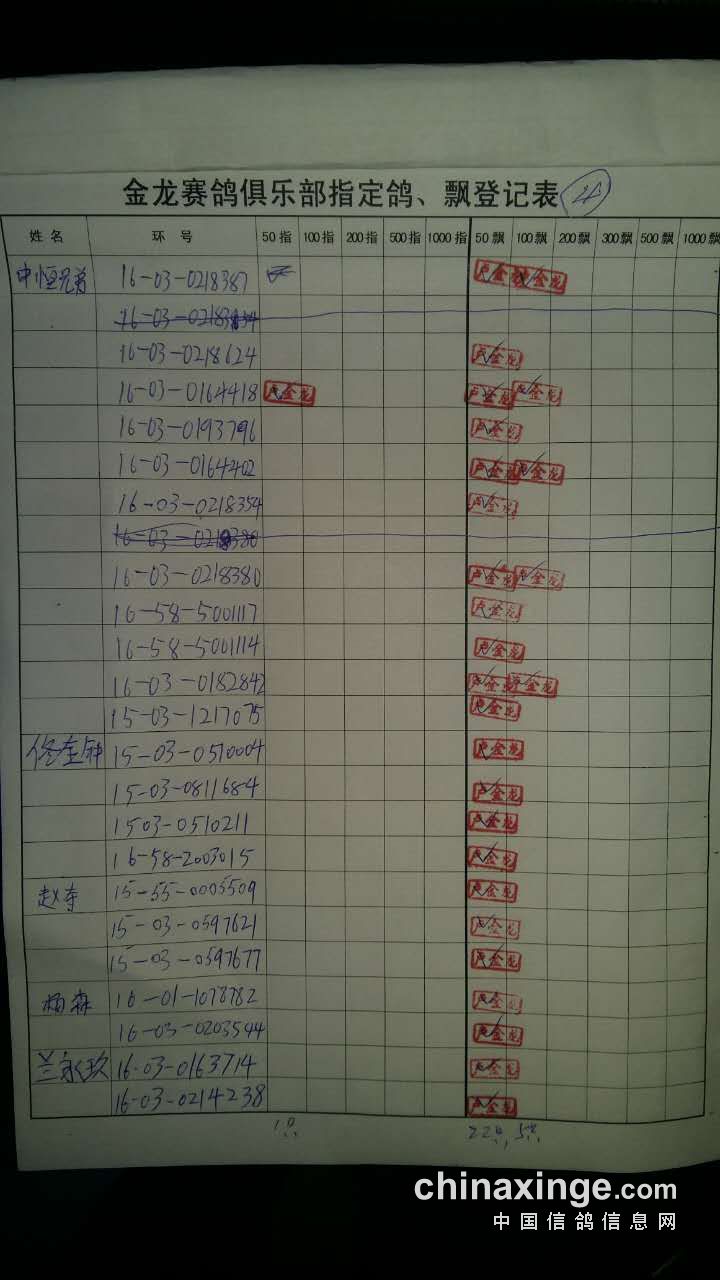 金龙赛鸽俱乐部指定鸽、飘登记表
姓名 环号 50指 100指 200指 500指 1000指 50飘 100飘 200飘 300飘 500飘 1000飘
中恒兄弟 16-03-0218387 卢金龙 卢金龙
16-03-0218624 卢金龙
16-03-0164418 卢金龙 卢金龙 卢金龙
16-03-0193796 卢金龙
16-03-0164402 卢金龙 卢金龙
16-03-0218354 卢金龙
16-03-0218380
16-03-0218380 卢金龙 卢金龙
16-58-5001117 卢金龙
16-58-5001114 卢金龙
16-03-0182842 卢金龙 卢金龙
15-03-1217075 卢金龙
佟金钟 15-03-0510004 卢金龙
15-03-0811684 卢金龙
1503-0510211 卢金龙
16-58-2003015 卢金龙
赵寺 15-55-0005509 卢金龙
15-03-0597621 卢金龙
15-03-0597677 卢金龙
杨森 16-01-1078782 卢金龙
16-03-0203544 卢金龙
兰永玖 16-03-0163714 卢金龙
16-03-0214238 卢金龙
chinaxinge.com
中国信鸽信息网